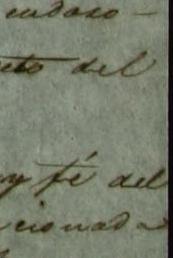 cudoso
eto del
oy fé del
cionada